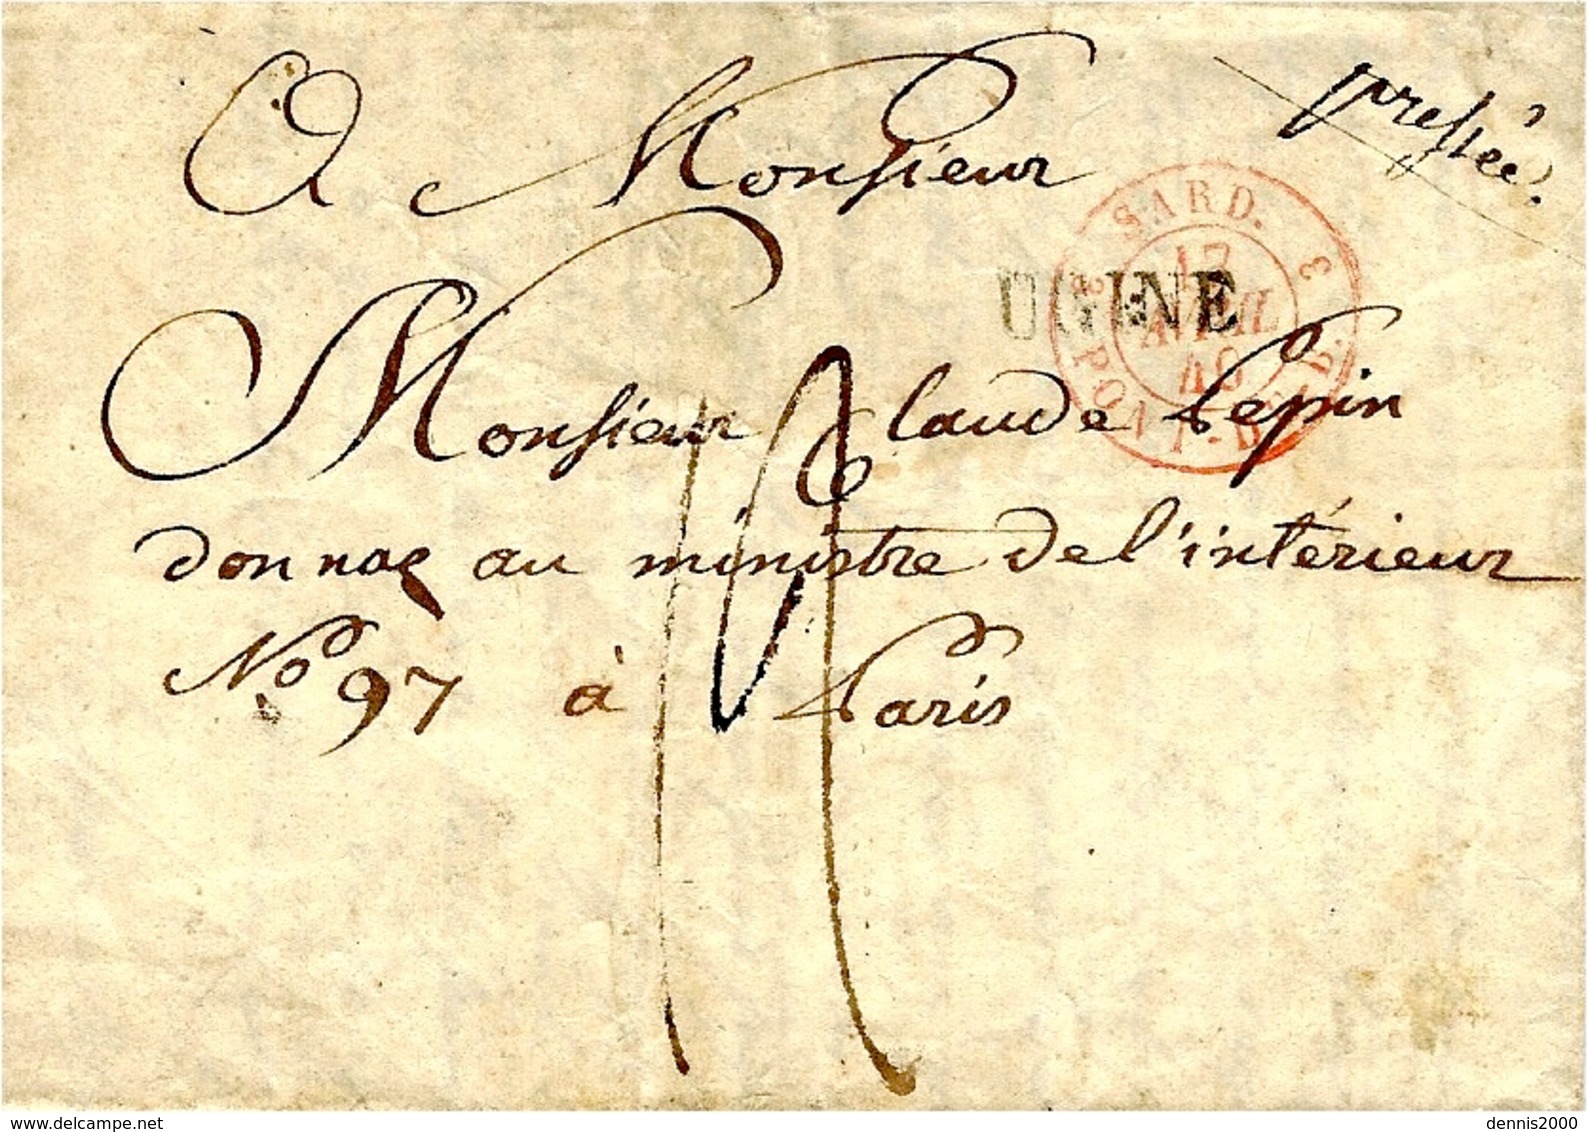 A Monsieur
pressée.
SARD. 3 PONT-DE-B. 3
17
AVRIL
40
UGINE
Monsieur Claude Pepin
donnae au ministre de l'intérieur
No 97 à Paris
www.delcampe.net
dennis2000